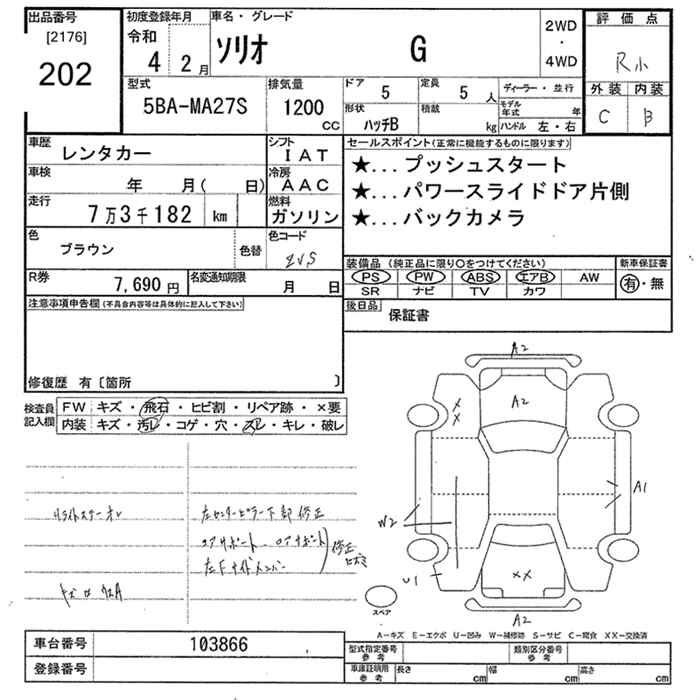 出品番号
[2176]
202
初度登録年月
令和
4 2月
車名・グレード
ソリオ G
2WD
・
4WD
評価点
R
外装 内装
C B
型式
5BA-MA27S
排気量
1200
CC
ドア
5
定員
5 人
形状
ハッチB
積載
kg
ディーラー・並行
モデル年式 年
ハンドル 左・右
車歴
レンタカー
シフト
IAT
車検
年 月( 日)
冷房
AAC
走行
7万3千182 km
燃料
ガソリン
色
ブラウン
色替
色コード
ZVS
R券
7,690 円
名変通知期限
月 日
セールスポイント(正常に機能するものに限ります)
★...プッシュスタート
★...パワースライドドア片側
★...バックカメラ
装備品(純正品に限り○をつけてください)
PS PW ABS エアB AW
SR ナビ TV カワ
新車保証書
有・無
後日品
保証書
注意事項申告欄(不具合内容等は具体的に記入して下さい)
修復歴 有〔箇所 〕
検査員記入欄
FW キズ・飛石・ヒビ割・リペア跡・×要
内装 キズ・汚レ・コゲ・穴・スレ・キレ・破レ
左センターピラー下部 修正
A2
A2
XX
W2
A1
U1
XX
A2
スペア
A-キズ E-エクボ U-凹み W-補修跡 S-サビ C-腐食 XX-交換済
車台番号
103866
登録番号
型式指定番号 参考
類別区分番号 参考
車庫証明用 参考
長さ cm
幅 cm
高さ cm